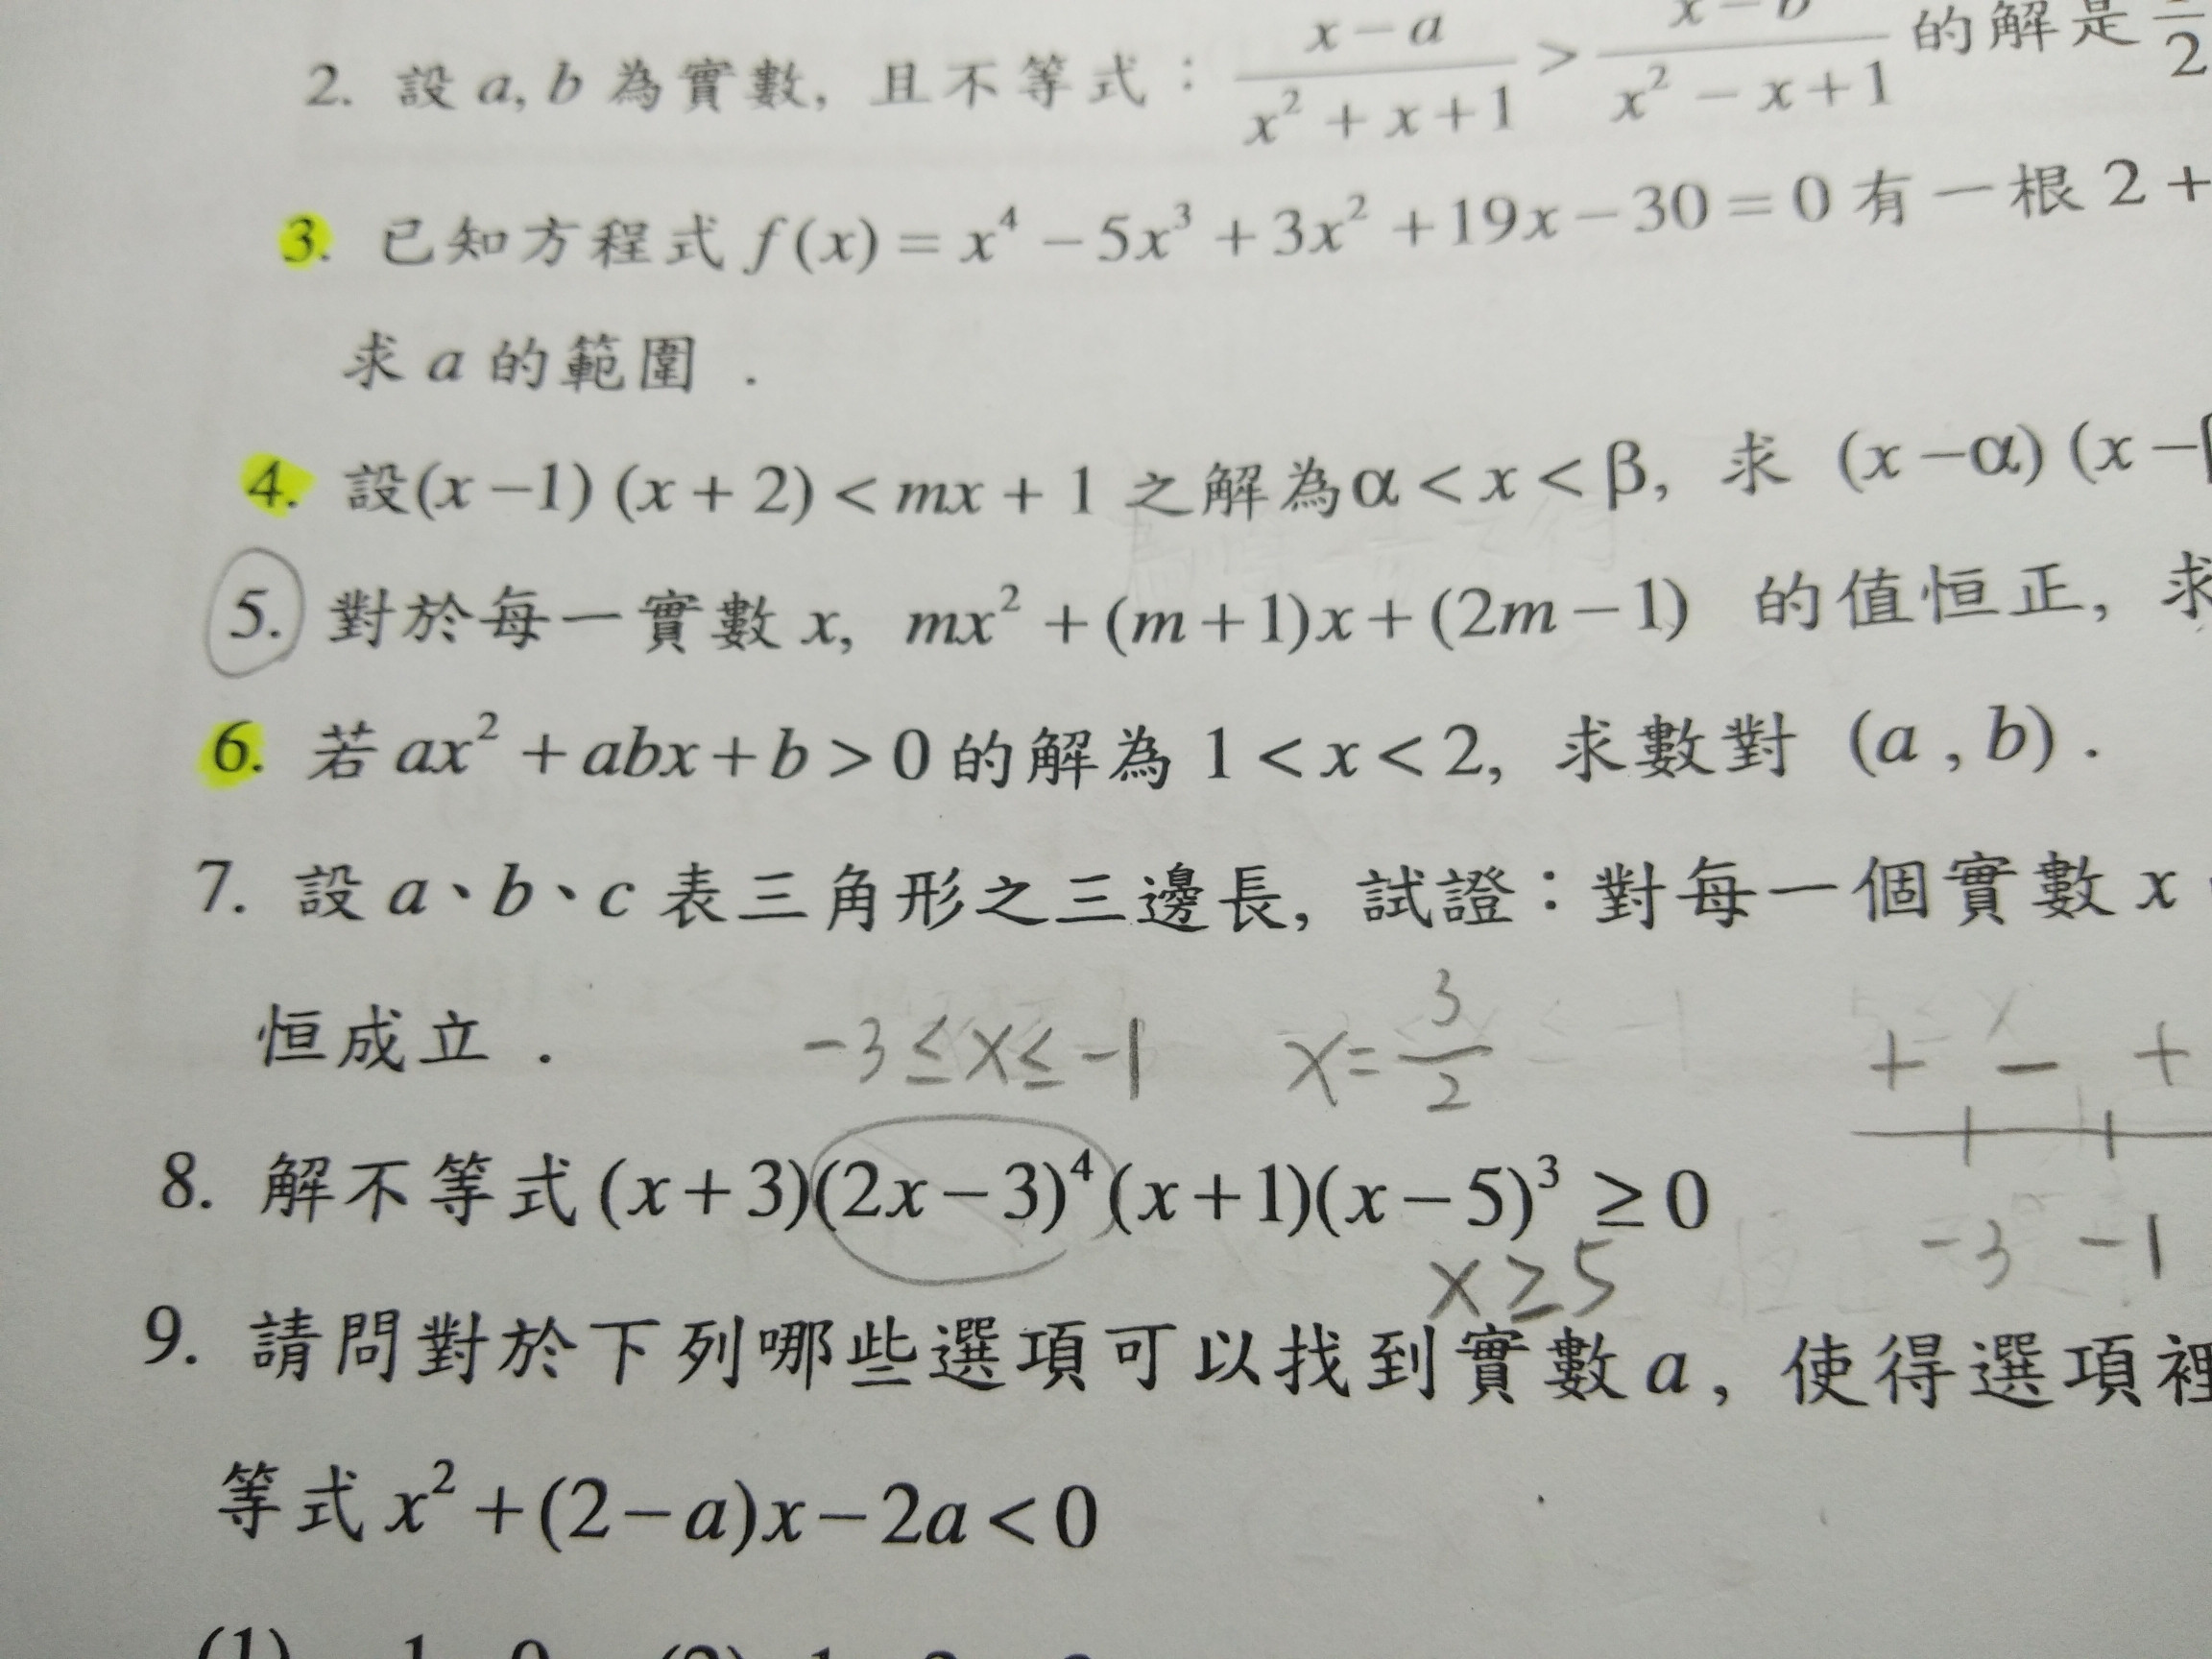 2. 設 a, b 為實數, 且不等式: \frac{x-a}{x^2+x+1} > \frac{x-b}{x^2-x+1} 的解是
3. 已知方程式 f(x) = x^4 - 5x^3 + 3x^2 + 19x - 30 = 0 有一根 2 +
求 a 的範圍 .
4. 設(x-1)(x+2) < mx+1 之解為 α < x < β, 求 (x-α)(x-
5. 對於每一實數 x, mx^2 + (m+1)x + (2m-1) 的值恒正, 求
6. 若 ax^2 + abx + b > 0 的解為 1 < x < 2, 求數對 (a, b) .
7. 設 a、b、c 表三角形之三邊長, 試證:對每一個實數 x
恒成立 .
-3 ≤ x ≤ -1 x = \frac{3}{2} + - +
8. 解不等式 (x+3)(2x-3)^4(x+1)(x-5)^3 ≥ 0
-3 -1
x ≥ 5
9. 請問對於下列哪些選項可以找到實數 a, 使得選項裡
等式 x^2 + (2-a)x - 2a < 0
(1)